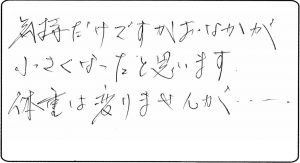 気持だけですがおなかが
小さくなったと思います
体重は変りませんが・・・・